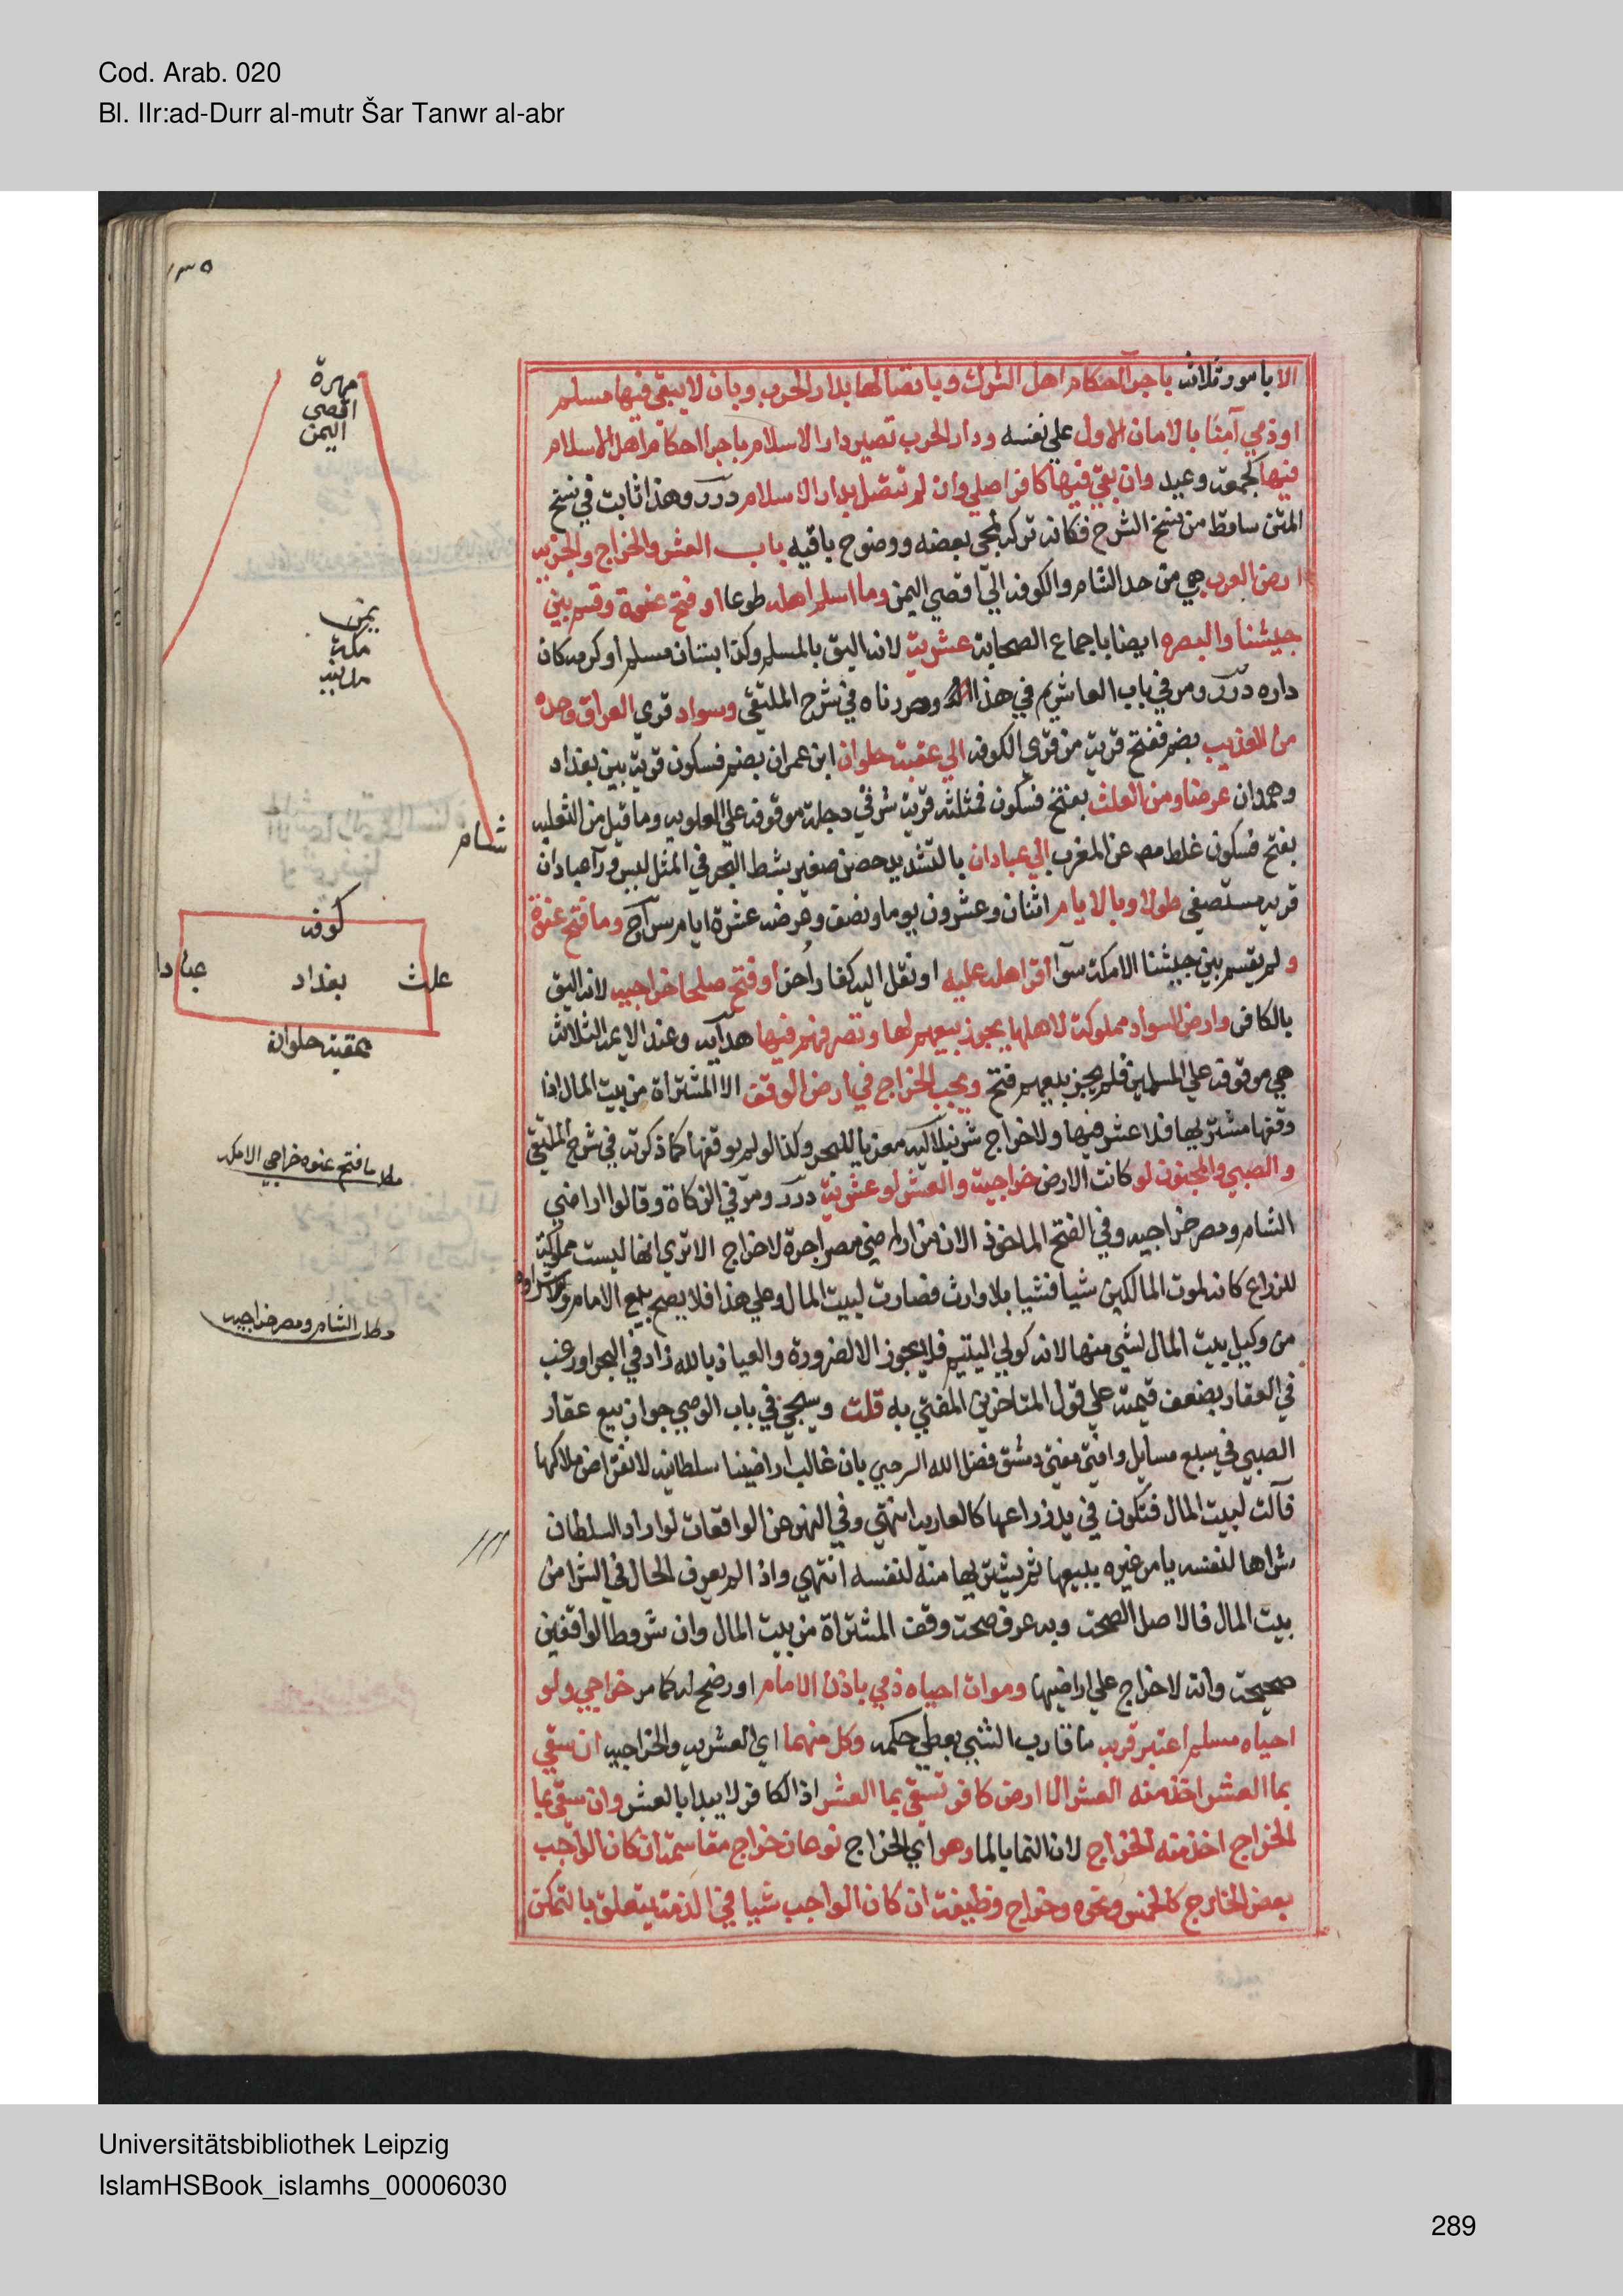 Cod. Arab. 020
Bl. IIr:ad-Durr al-mutr Šar Tanwr al-abr
١٣٥
الا بامور ثلاث باجرآ احكام اهل الشرك وباتصالها بدار الحرب وبان لا يبقي فيها مسلم
او ذمي آمنا بالامان الاول علي نفسه ودار الحرب تصير دار الاسلام باجرآ احكام اهل الاسلام
فيها كجمعة وعيد وان بقي فيها كافر اصلي وان لم تتصل بدار الاسلام درر وهذا ثابت في نسخ
المتن ساقط من نسخ الشرح فكانه تركه لمجي بعضه ووضوح باقيه باب العشر والخراج والجزيه
ارض العرب هي من حد الشام والكوفه الي اقصي اليمن وما اسلم اهله طوعا او فتح عنوة وقسم بين
جيشنا والبصره ايضا باجماع الصحابة عشرية لانه اليق بالمسلم وكذا بستان مسلم او كرمه كان
داره درر ومر في باب العاشر في هذا وحررناه في شرح الملتقي وسواد قري العراق وحده
من العذيب بضم ففتح قرية من قري الكوفه الي عقبة حلوان ابن عمران بضم فسكون قرية بين بغداد
وهمدان عرضا ومن العلث بفتح فسكون فمثلثه قرية شرقي دجلة موقوفه علي العلويه وما قيل من الثعلبه
بفتح فسكون غلط مص عن المغرب الي عبادان بالتشديد حصن صغير بشط البحر في المثل ليس ورآ عبادان
قريه مستصفي طولا وبالايام اثنان وعشرون يوما ونصف وعرضه عشرة ايام سراج وما فتح عنوة
ولم يقسم بين جيشنا الا مكة سوآ اقر اهله عليه او نقل اليه كفار اخر او فتح صلحا خراجيه لانه اليق
بالكافر وارض السواد مملوكة لاهلها يجوز بيعهم لها وتصرفهم فيها هدايه وعند الايمة الثلاث
هي موقوفه علي المسلمين فلم يجز بيعهم فتح ويجب الخراج في ارض الوقف الا المشتراة من بيت المال اذا
وقفها مشتريها فلا عشر فيها ولا خراج شرنبلاليه معزيا للبحر وكذا لو لم يوقفها كما ذكرته في شرح الملتقي
والصبي والمجنون لو كانت الارض خراجية والعشر لو عشرية درر ومر في الزكاة وقالوا اراضي
الشام ومصر خراجيه وفي الفتح الماخوذ الان من اراضي مصر اجرة لا خراج الا تري انها ليست مملوكة
للزراع كانه لموت المالكين شيا فشيا بلا وارث فصارت لبيت المال وعلي هذا فلا يصح بيع الامام ولا شراوه
من وكيل بيت المال لشي منها لانه كولي اليتيم فلا يجوز الا لضرورة والعياذ بالله زاد في البحر او رغب
في العقار بضعف قيمته علي قول المتاخرين المفتي به قلت وسيجي في باب الوصي جواز بيع عقار
الصبي في سبع مسايل وافتي مفتي دمشق فضل الله الرحبي بان غالب اراضينا سلطانيه لانقراض ملاكها
فآلت لبيت المال فتكون في يد زراعها كالعارية انتهي وفي النهر عن الواقعات لو اراد السلطان
شراها لنفسه يامر غيره يبيعها ثم يشتريها منه لنفسه انتهي واذا لم يعرف الحال في الشرا من
بيت المال فالاصل الصحة وبه عرف صحة وقف المشتراة من بيت المال وان شروط الواقفين
صحيحة وانه لا خراج علي اراضيها وموات احياه ذمي باذن الامام او رضخ له كما مر خراجي ولو
احياه مسلم اعتبر قربه ما قارب الشي يعطي حكمه وكل منهما اي العشريه والخراجيه ان سقي
بما العشر اخذ منه العشر الا ارض كافر تسقي بما العشر اذ الكافر لا يبدا بالعشر وان سقي بما
الخراج اخذ منه الخراج لان النما بالما وهو اي الخراج نوعان خراج مقاسمة ان كان الواجب
بعض الخارج كالخمس ونحوه وخراج وظيفة ان كان الواجب شيا في الذمة يتعلق بالتمكن
مهرة
اقصي
اليمن
يمن
مكة
شام
كوفه
علث
بغداد
عبادا
عقبة حلوان
مطلب ما فتح عنوه خراجي الا مكه
مطلب الشام ومصر خراجيه
Universitätsbibliothek Leipzig
IslamHSBook_islamhs_00006030
289